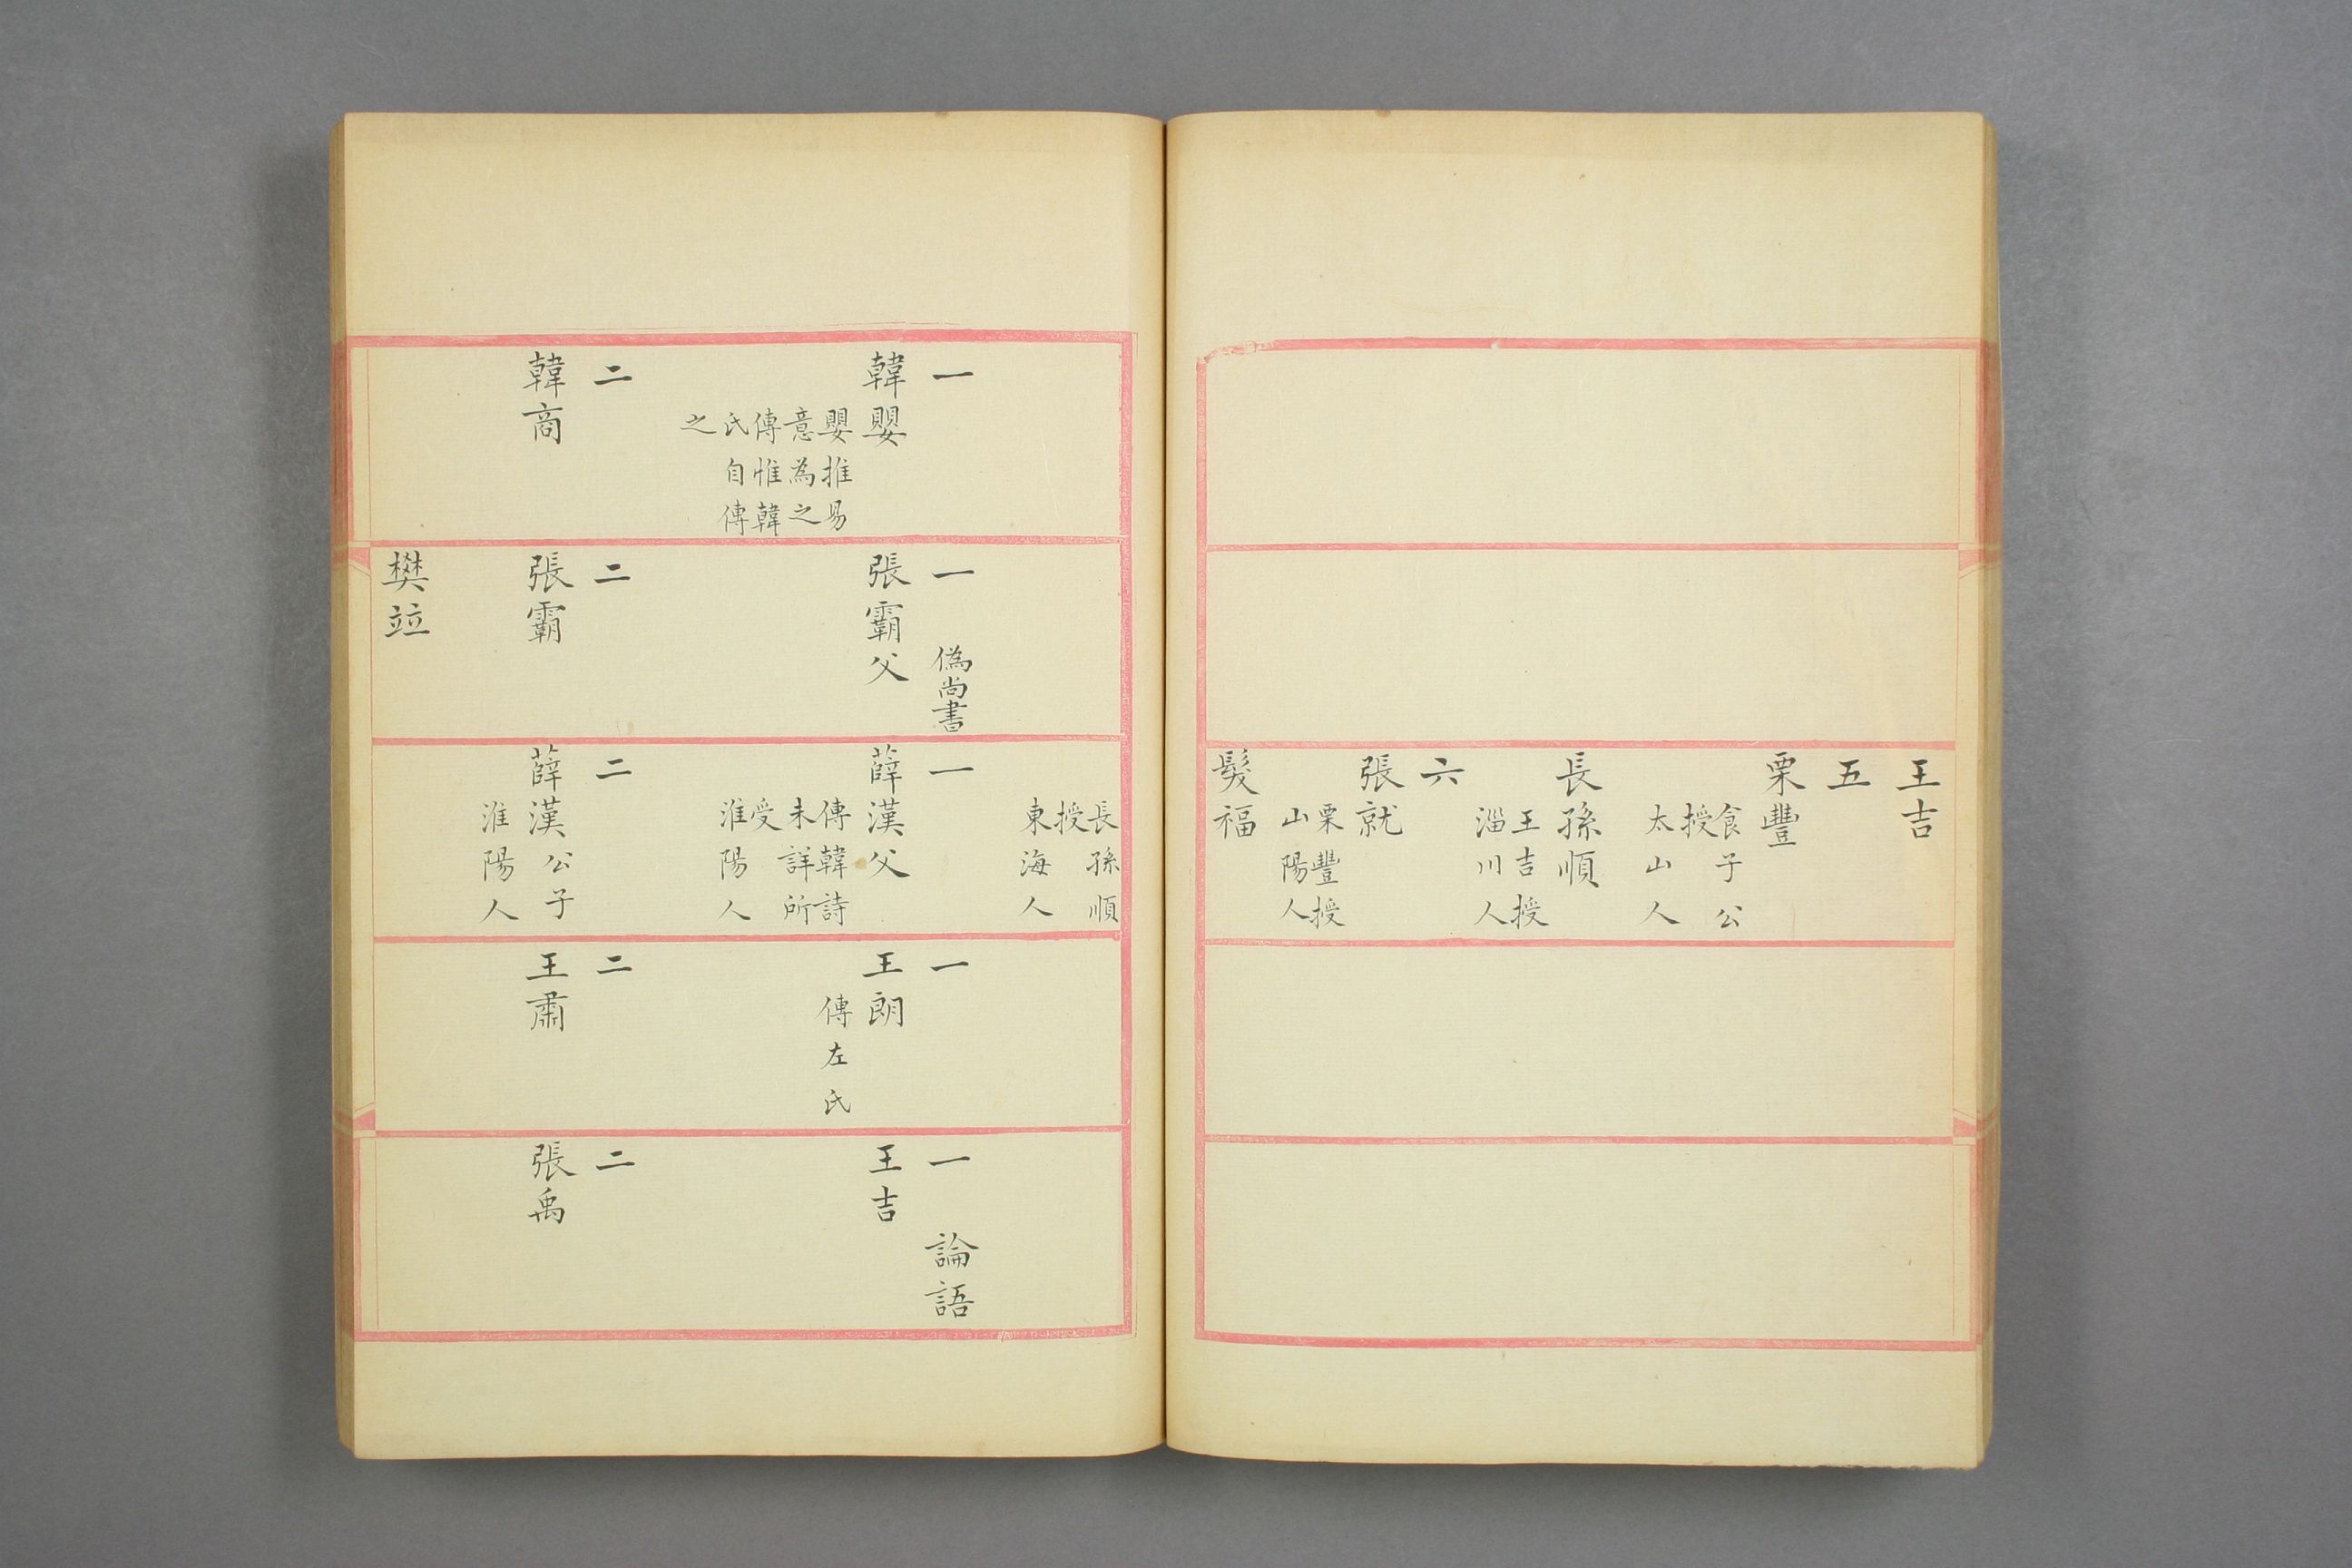 王吉
五
栗豐
食子公
授
太山人
長孫順
王吉授
淄川人
六
張就
栗豐授
山陽人
髮福
長孫順
授
東海人
一
韓嬰
嬰推易
意為之
傳惟韓
氏自傳
之
二
韓商
一 偽尚書
張霸父
二
張霸
樊竝
一
薛漢父
傳韓詩
未詳所
受
淮陽人
二
薛漢公子
淮陽人
一
王朗
傳左氏
二
王肅
一 論語
王吉
二
張禹